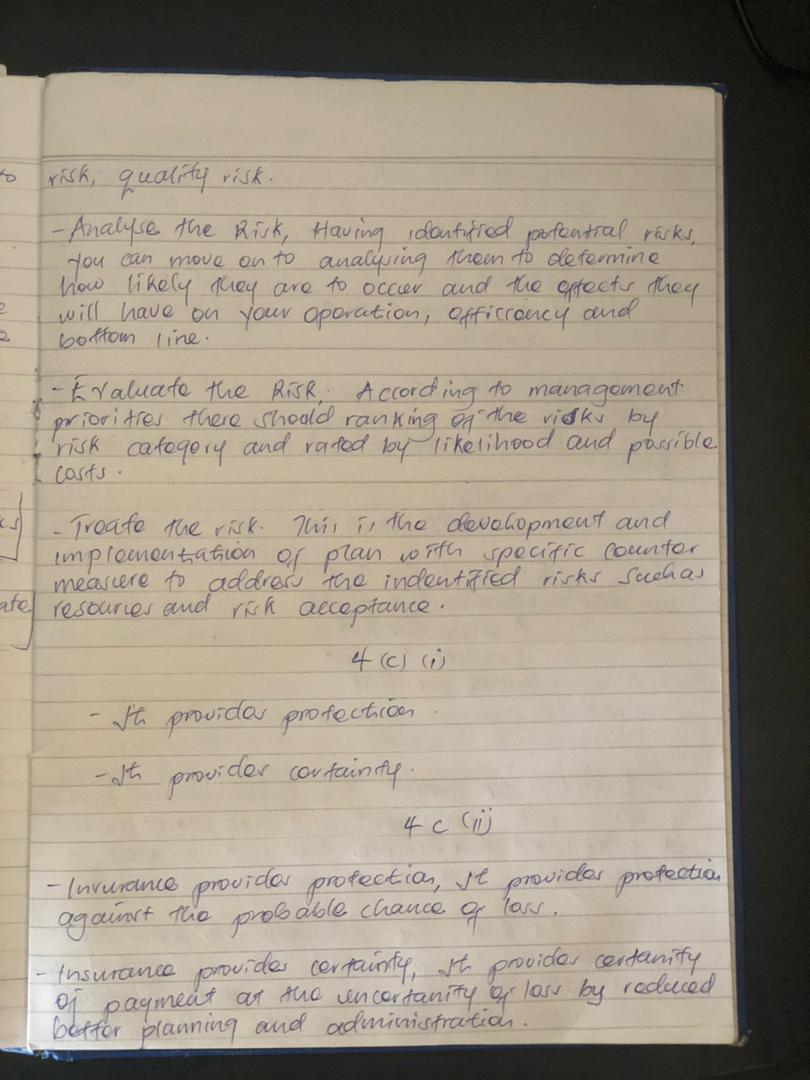 to
risk, quality risk.
- Analyse the Risk, Having identified potential risks,
you can move on to analysing them to determine
how likely they are to occer and the effects they
will have on your operation, efficency and
bottom line.
- Evaluate the Risk. According to management
priorities there should ranking of the risks by
risk category and rated by likelihood and possible
costs.
- Treate the risk. This is the development and
implementation of plan with specific counter
measure to address the indentified risks such as
resources and risk acceptance.
ate
4 (c) (i)
- It provides protection.
- It provides certainty.
4 c (ii)
- Insurance provides protection, It provides protection
against the probable chance of loss.
- Insurance provides certainty, It provides certanity
of payment at the uncertanity of loss by reduced
better planning and administration.